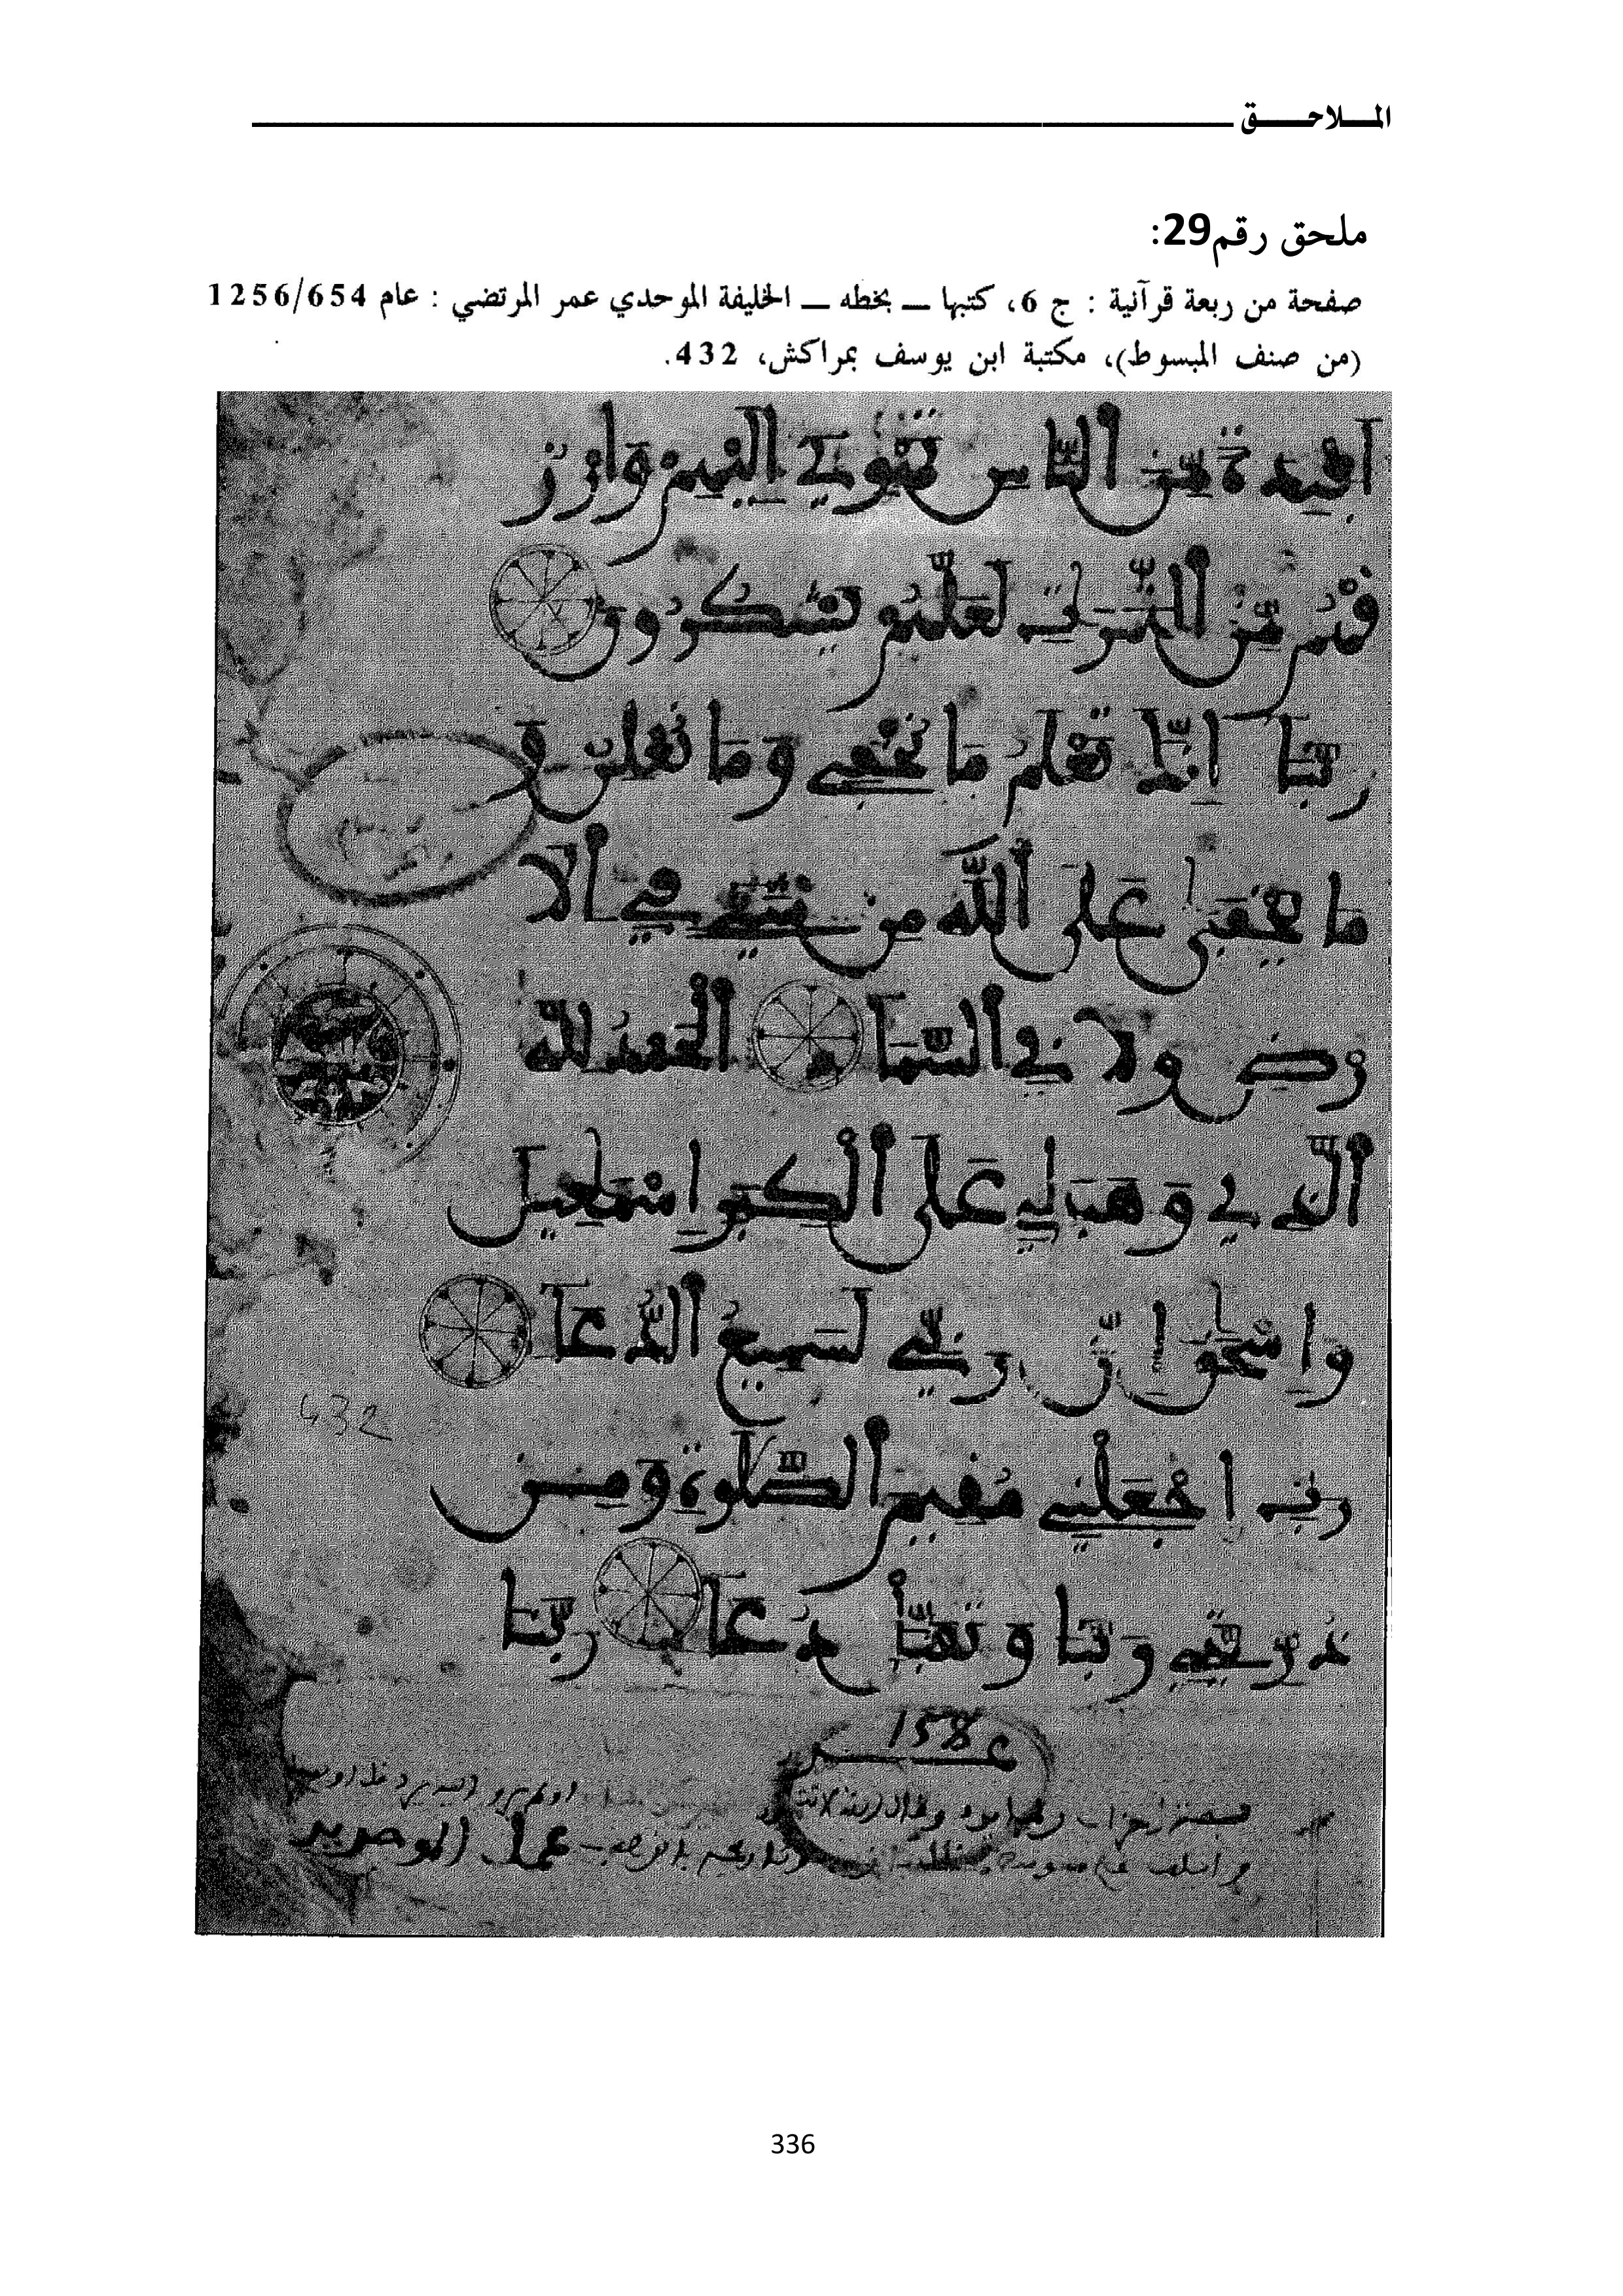 الملاحق
ملحق رقم29:
صفحة من ربعة قرآنية : ج 6، كتبها ــ بخطه ــ الخليفة الموحدي عمر المرتضي : عام 1256/654
(من صنف المبسوط)، مكتبة ابن يوسف بمراكش، 432.
أَفْئِدَةً مِّنَ ٱلنَّاسِ تَهْوِي إِلَيْهِمْ وَارْزُ
قْهُم مِّنَ ٱلثَّمَرَٰتِ لَعَلَّهُمْ يَشْكُرُونَ
رَبَّنَا إِنَّكَ تَعْلَمُ مَا نُخْفِي وَمَا نُعْلِنُ وَ
مَا يَخْفَىٰ عَلَى ٱللَّهِ مِن شَيْءٍ فِي ٱلَا
رْضِ وَلَا فِي ٱلسَّمَاءِ ٱلْحَمْدُ لِلَّهِ
ٱلَّذِي وَهَبَ لِي عَلَى ٱلْكِبَرِ إِسْمَٰعِيلَ
وَإِسْحَٰقَ إِنَّ رَبِّي لَسَمِيعُ ٱلدُّعَاءِ
رَبِّ ٱجْعَلْنِي مُقِيمَ ٱلصَّلَوٰةِ وَمِن
ذُرِّيَّتِي رَبَّنَا وَتَقَبَّلْ دُعَاءِ رَبَّنَا
432
158
عمل الموحدين
336